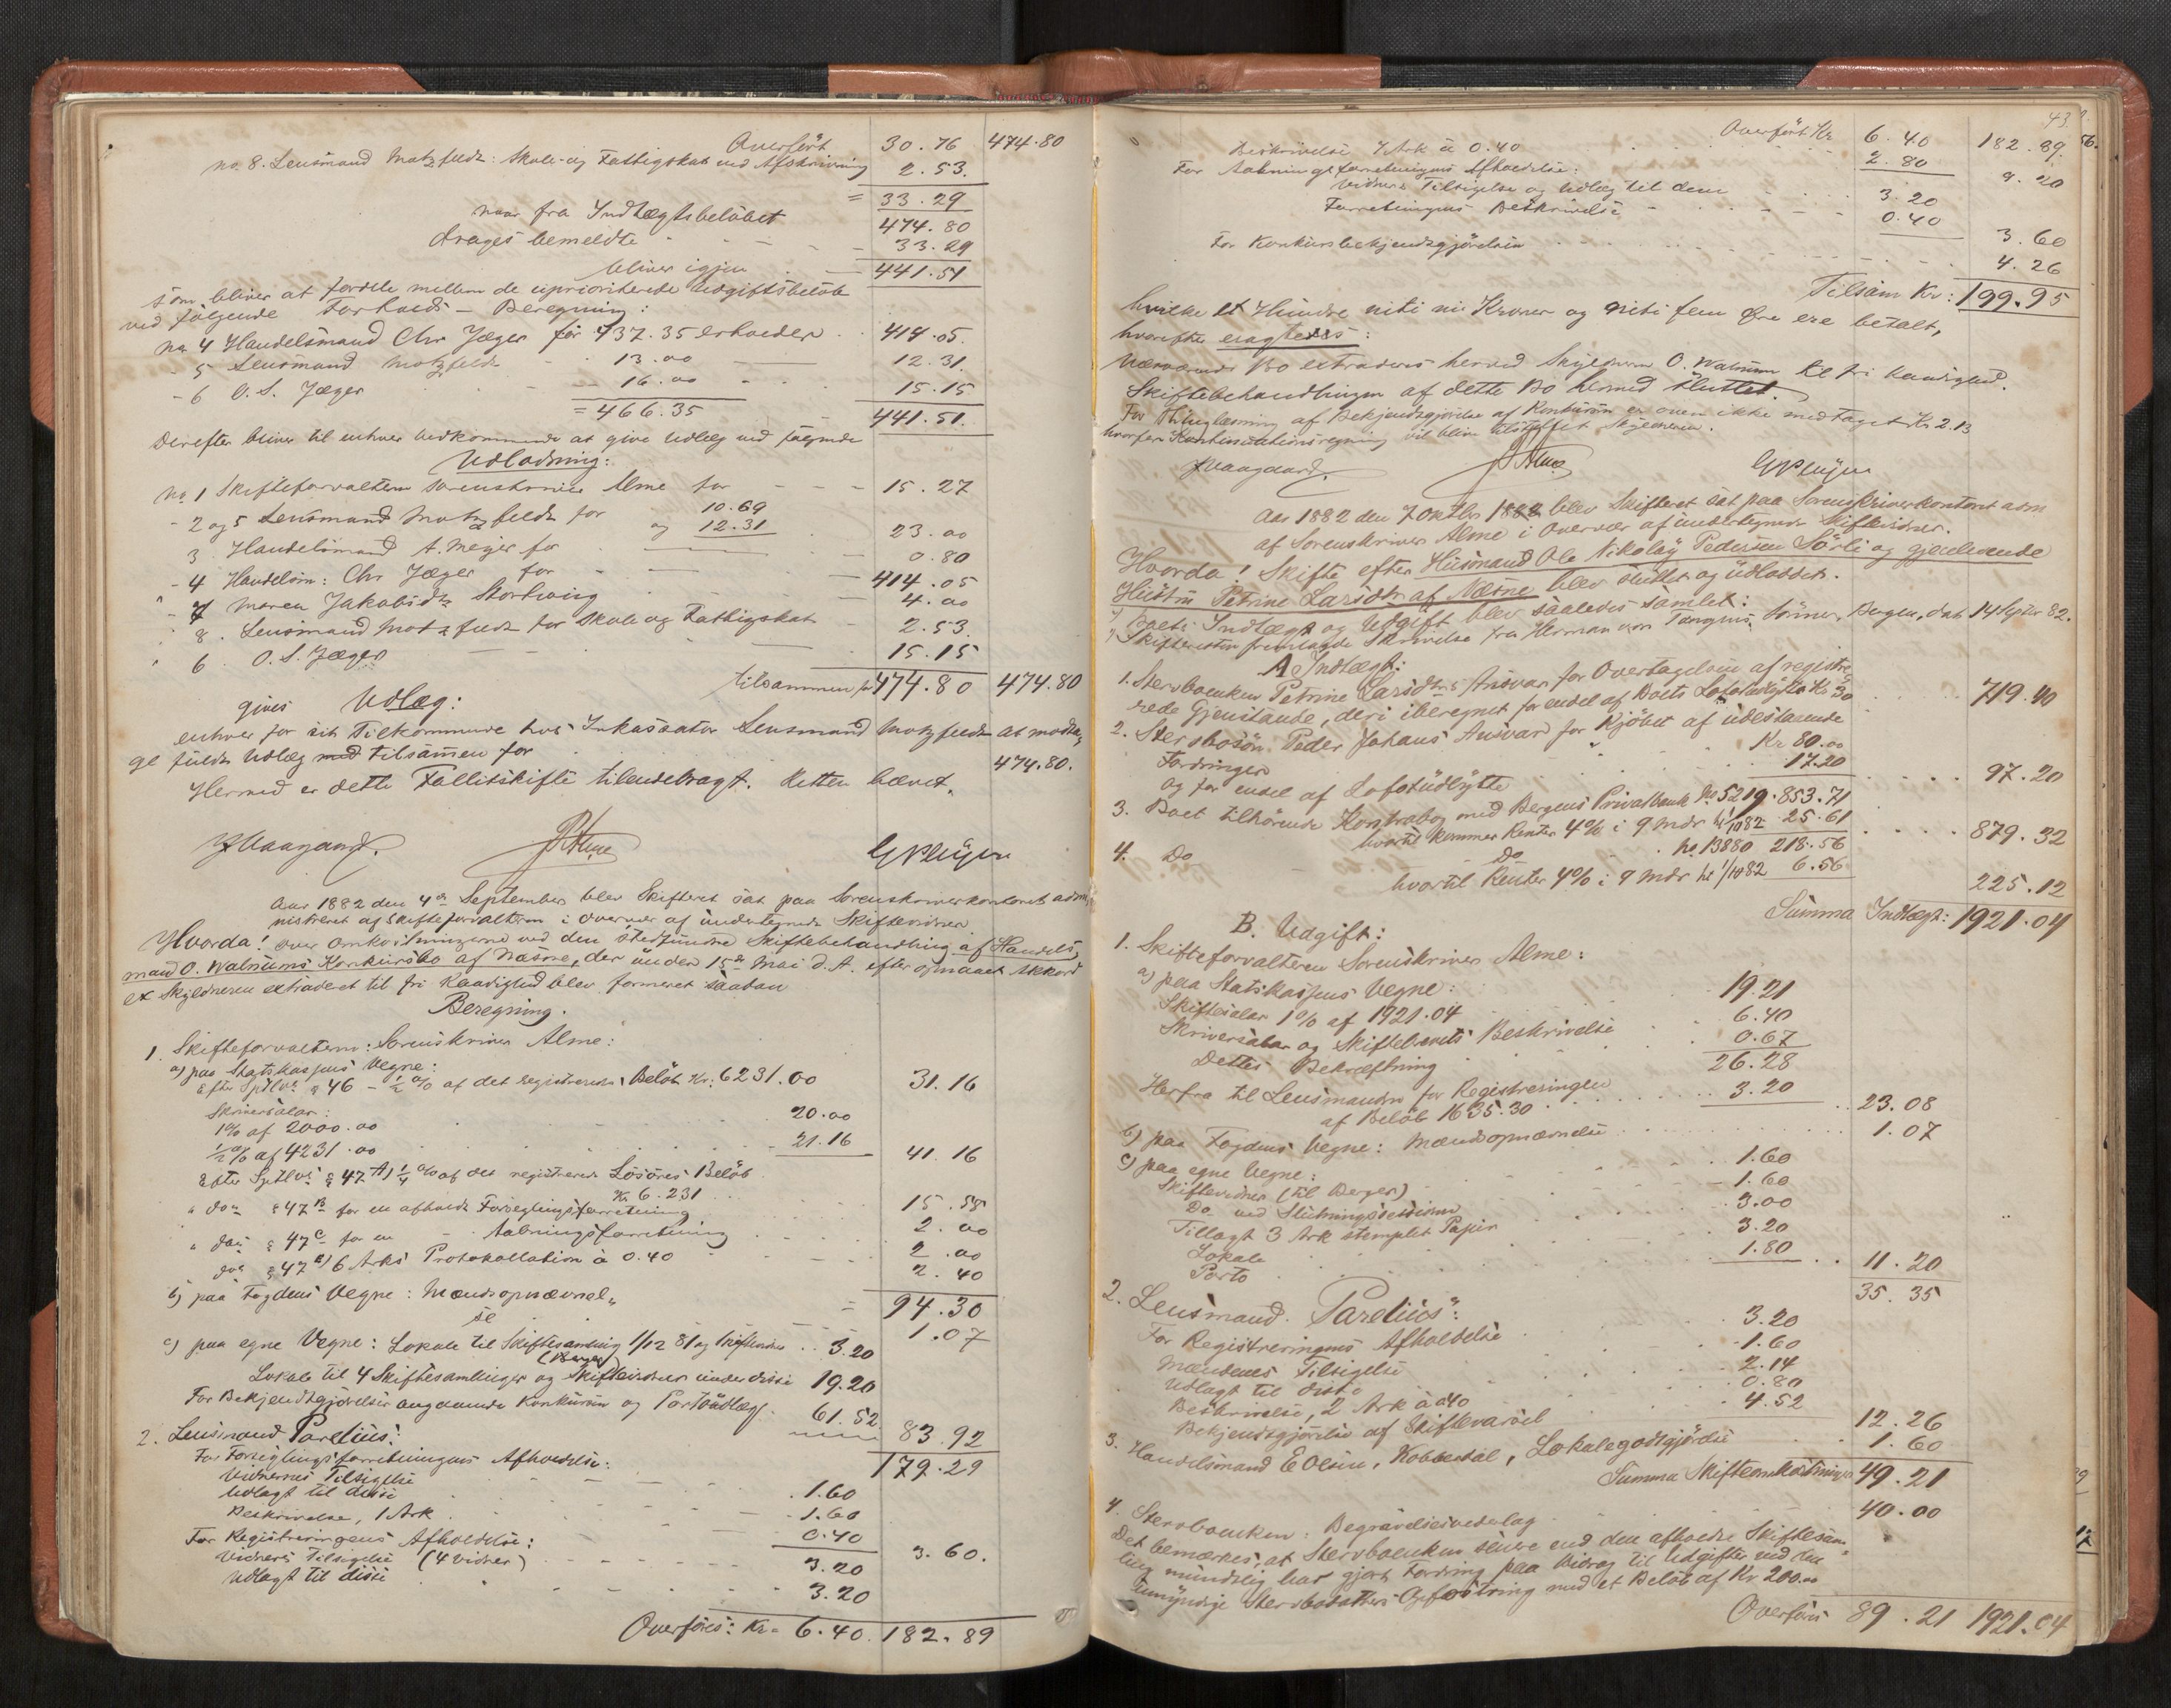 Overført 30.76 474.80
no 8. Lensmand Motzfeldt: Skole- og Fattigskat ved Afskrivning 2.53.
= 33.29
naar fra Indtægtsbeløbet 474.80
drages bemeldte 33.29
bliver igjen 441.51
som bliver at fordele mellem de uprioriterede Udgiftsbeløb
ved følgende Forholds-Beregning:
No 4 Handelsmand Chr Jæger for 437.35 erholder 414.05.
- 5 Lensmand Motzfeldt 13.00 12.31.
- 6 O. S. Jæger 16.00 15.15
= 466.35 441.51.
Derefter bliver til enhver Vedkommende at give Udlæg ved følgende
Udlodning:
No 1 Skifteforvalteren Sorenskriver Alme for 15.27
- 2 og 5 Lensmand Motzfeldt for 10.69
og 12.31 23.00
3. Handelsmand A. Meyer for 0.80
- 4 Handelsm: Chr Jæger for 414.05
- 7 Maren Jakobsdtr Storhaug 4.00
8. Lensmand Motzfeldt for Skole og Fattigskat 2.53.
6 O. S. Jæger 15.15
tilsammen for 474.80 474.80
gives Udlæg:
enhver for sit Tilkommende hos Inkassator Lensmand Motzfeldt at modta,
ge fuldt Udlæg med tilsammen for 474.80.
Hermed er dette Fallitskifte tilendebragt. Retten hævet.
Aar 1882 den 4de September blev Skifteret sat paa Sorenskriverkontoret admi,
nistreret af Skifteforvalteren i Overvær af undertegnede Skiftevidner.
Hvorda! over Omkostningerne ved den stedfundne Skiftebehandling af Handels,
mand O. Walnums Konkursbo af Næsne, der under 15de Mai d. A. efter opnaaet Akkord
er Skyldneren extraderet til fri Raadighed blev formeret saadan
Beregning.
1. Skifteforvalteren: Sorenskriver Alme:
a) paa Statskassens Vegne:
Efter Sptlvs § 46 - ½ % af det registrerede Beløb Kr: 6231.00 31.16
Skriversalær:
1% af 2000.00 20.00
½ % af 4231.00 21.16 41.16
Efter Sptlvs § 47 A) ¼ % af det registrerede Løsøres Beløb
Kr 6.231 15.58
" do § 47 B for en afholdt Forseglingsforretning 2.00
" do § 47 C for en - Aabningsforretning 2.00
" do § 47 E) 6 Arks Protokollation à 0.40 2.40
= 94.30
b) paa Fogdens Vegne: Mændsopnævnel,
se 1.07
c) paa egne Vegne: Lokale til Skiftesamling 1/12 81 og Skiftevidner 3.20
(Berger)
Lokale til 4 Skiftesamlinger og Skiftevidner under disse 19.20
For Bekjendtgjørelser angaaende Konkursen og Portoudlæg. 61.52 83.92
179.29
2. Lensmand Parelius:
For Forseglingsforretningens Afholdelse:
Vidnernes Tilsigelse 1.60
Udlagt til disse 1.60
Beskrivelse, 1 Ark 0.40
3.60.
For Registreringens Afholdelse:
Vidners Tilsigelse (4 Vidner) 3.20
Udlagt til disse 3.20
Overføres: Kr = 6.40. 182.89
43.
Overført Kr 6.40 182.89.
Beskrivelse 7 Ark à 0.40 2.80 9.20
For Aabningsforretningens Afholdelse:
Vidners Tilsigelse og Udlæg til dem 3.20
Forretningens Beskrivelse 0.40 3.60
For Konkursbekjendtgjørelsen 4.26
Tilsam Kr: 199.95
hvilke et Hundre niti ni Kroner og niti fem Øre ere betalt,
hvorefter eragtes:
Nærværende Bo extraderes herved Skyldneren O. Walnum til fri Raadighed.
Skiftebehandlingen af dette Bo hermed sluttet.
For Thinglæsning af Bekjendtgjørelse af Konkursen er oven ikke medtaget Kr 2.13
hvorfor Kontinuationsregning vil blive tilstillet Skyldneren.
Aar 1882 den 7 Oktbr 1882 blev Skifteret sat paa Sorenskriverkontoret adm
af Sorenskriver Alme i Overvær af undertegnede Skiftevidner.
Hvorda! Skifte efter Husmand Ole Nikolay Pedersen Sørli og gjenlevende
Hustru Petrine Larsdtr af Næsne blev sluttet og udloddet.
Skifteretten fremlagde Skrivelse fra Herman von Tangens Sønner, Bergen, dat. 14 Septbr 82.
Boets Indtægt og Udgift blev saaledes samlet:
A Indtægt:
1. Stervboenken Petrine Larsdtrs Ansvar for Overtagelsen af registre,
rede Gjenstande, deri iberegnet for endel af Boets Lofotudbytte Kr 30 719.40
2. Stervbosøn Peder Johans Ansvar for Kjøbet af udestaaende
Fordringer Kr 80.00
og for endel af Lofotudbytte 17.20 97.20
3. Boet tilhørende Kontrabog med Bergens Privatbank No 5219. 853.71
hvortil kommer Renter 4% i 9 Mdr til 1/10 82 25.61 879.32
4. Do Do No 13880 218.56
hvortil Renter 4% i 9 Mdr til 1/10 82 6.56 225.12
Summa Indtægt: 1921.04
B. Udgift:
1. Skifteforvalteren Sorenskriver Alme:
a) paa Statskassens Vegne:
Skiftesalær 1% af 1921.04 19.21
Skriversalær og Skiftebrevets Beskrivelse 6.40
Dettes Bekræftning 0.67
26.28
Herfra til Lensmanden for Registreringen
af Beløb 1635.30 3.20 23.08
b) paa Fogdens Vegne: Mændsopnævnelse 1.07
c) paa egne Vegne:
Skiftevidner (til Berger) 1.60
Do ved Slutningssessionen 1.60
Tillagt 3 Ark stemplet Papir 3.00
Lokale 3.20
Porto 1.80 11.20
35.35
2. Lensmand Parelius:
For Registreringens Afholdelse 3.20
Mændenes Tilsigelse 1.60
Udlagt til disse 2.14
Beskrivelse, 2 Ark à 0.40 0.80
Bekjendtgjørelse af Skiftevarsel 4.52 12.26
3. Handelsmand E Olsen, Kobberdal, Lokalegodtgjørelse 1.60
Summa Skifteomkostninger 49.21
4. Stervboenken: Begravelsesvederlag 40.00
Det bemærkes, at Stervboenken senere end den afholdte Skiftesam,
ling mundtlig har gjort Fordring paa Bidrag til Udgifter ved den
umyndige Stervbodatters Opfostring med et Beløb af Kr 200.00
Overføres 89.21 1921.04